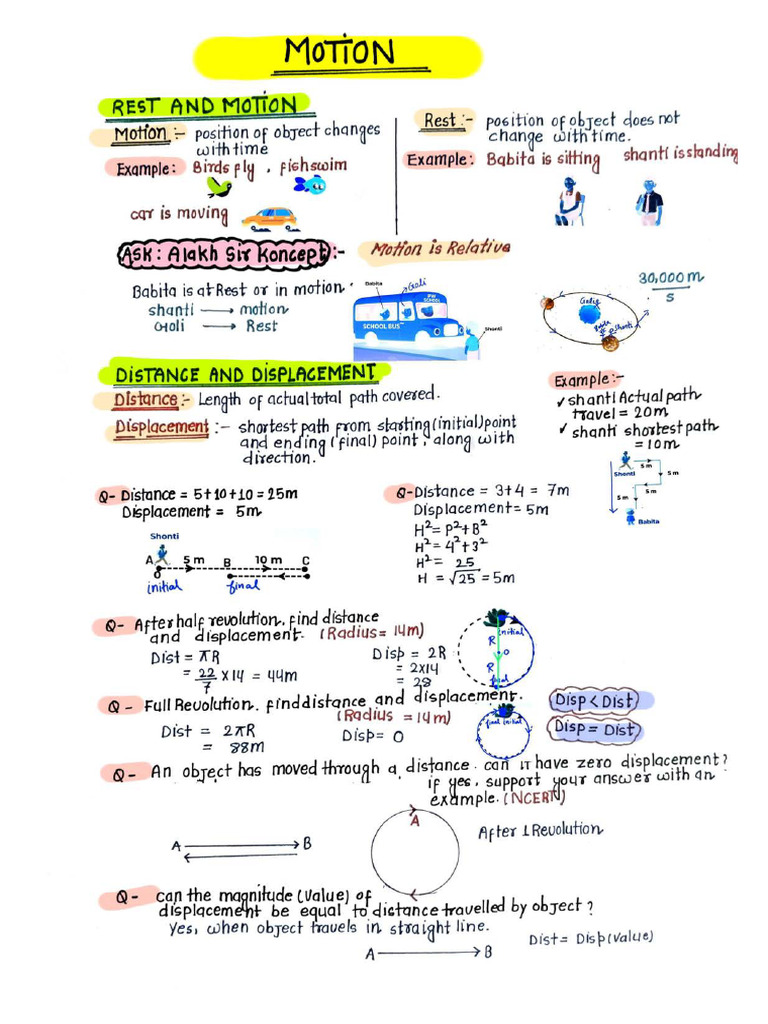 MOTION
REST AND MOTION
Motion :- position of object changes
with time
Example: Birds fly , fish swim
car is moving
Rest :- position of object does not
change with time.
Example: Babita is sitting shanti is standing
Ask: Alakh Sir Koncept :- Motion is Relative
Babita is at Rest or in motion
shanti → motion
Goli → Rest
Babita
Goli
PW
SCHOOL
SCHOOL BUS
Shanti
30,000 m
s
Babita
Shanti
DISTANCE AND DISPLACEMENT
Distance :- Length of actual total path covered.
Displacement :- shortest path from starting (initial) point
and ending (final) point, along with
direction.
Example :-
✓ shanti Actual path
travel = 20m
✓ shanti shortest path
= 10m
Shonti
5 m
5 m
5 m
5 m
Babita
Q- Distance = 5+10+10 = 25m
Displacement = 5m
Shonti
A 5 m B 10 m C
initial final
Q- Distance = 3+4 = 7m
Displacement = 5m
H² = P² + B²
H² = 4² + 3²
H² = 25
H = √25 = 5m
Q- After half revolution, find distance
and displacement. (Radius = 14m)
Dist = πR
= 22/7 × 14 = 44m
Disp = 2R
= 2×14
= 28
initial
R
O
R
final
Q - Full Revolution. find distance and displacement.
(Radius = 14m)
Dist = 2πR
= 88m
Disp = 0
final initial
Disp < Dist
Disp = Dist
Q - An object has moved through a distance. can it have zero displacement?
if yes, support your answer with an
example. (NCERT)
A B
A
After 1 Revolution
Q - can the magnitude (Value) of
displacement be equal to distance travelled by object?
Yes, when object travels in straight line.
A → B
Dist = Disp (value)